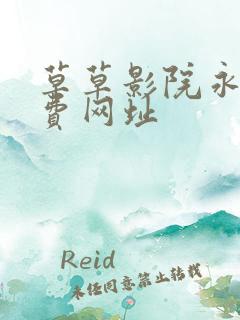 草草影院永
费网址
Reid
未经同意禁止转载